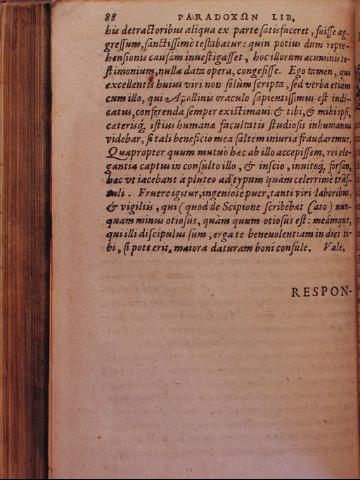 88 PARADOXΩN LIB.
his detractoribus aliqua ex parte satisfaceret, fuisse ag-
gressum, sanctissimè testabatur: quin potius dum repre-
hensionis causam inuestigasset, hoc illorum acuminu te-
stimonium, nulla data opera, congesisse. Ego tamen, qui
excellentis huius viri non solùm scripta, sed verba etiam
cum illo, qui Apollinis oraculo sapientissimus est indi-
catus, conferenda semper existimaui: & tibi, & mihi ipsi,
caterisq́; istius humanæ facultatis studiosis inhumanus
videbar, si tali beneficio mea saltem iniuria fraudaremur.
Quapropter quum mutuò hæc ab illo accepissem, rei ele-
gantia captus in consulto illo, & inscio, inuitoq́; forsan,
hæc vt iacebant à pluteo ad typum quàm celerrimè trās-
tuli. Fruere igitur, ingeniose puer, tanti viri laboribus,
& vigiliis, qui (quod de Scipione scribebat Cato) nun-
quam minus otiosus, quàm quum otiosus est: meámque,
qui illi discipulus sum, erga te beneuolentiam in dies ti-
bi, si pote erit, maiora daturam boni consule. Vale,
RESPON-